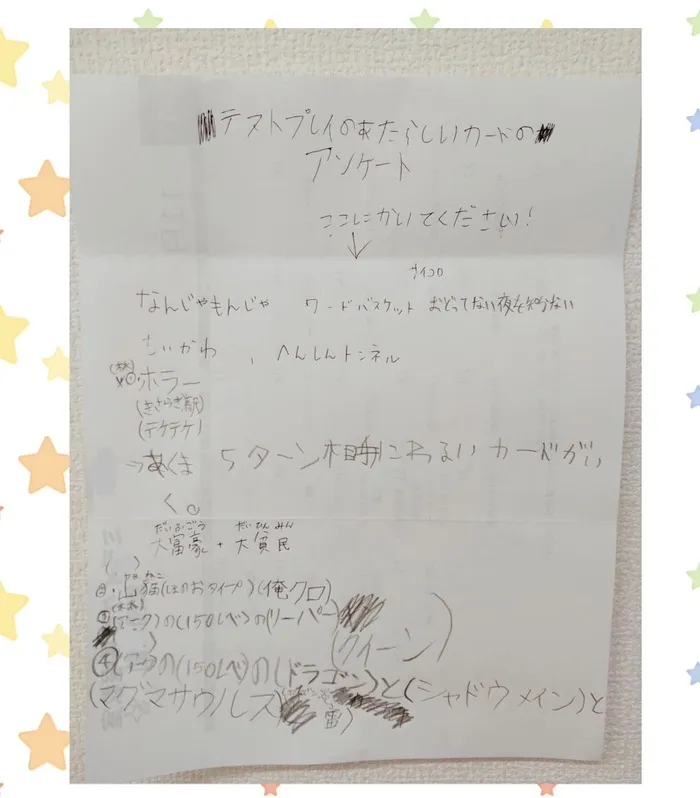 テストプレイのあたらしいカードの
アンケート
ここにかいてください!
↓
サイコロ
なんじゃもんじゃ ワードバスケット おどってない夜を知らない
ちいかわ 、 へんしんトンネル
ホラー
(きさらぎ駅)
(テケテケ)
→あくま 5ターン相手にわるいカードがい
く。
だいふごう だいひんみん
大富豪 + 大貧民
ねこ
②・山猫(ほのおタイプ)(俺クロ)
③(アーク)の(150レベ)の(リーパー)
(クイーン)
④(アーク)の(150レベ)の(ドラゴン)と(シャドウメイン)と
(マグマサウルス)
雷)